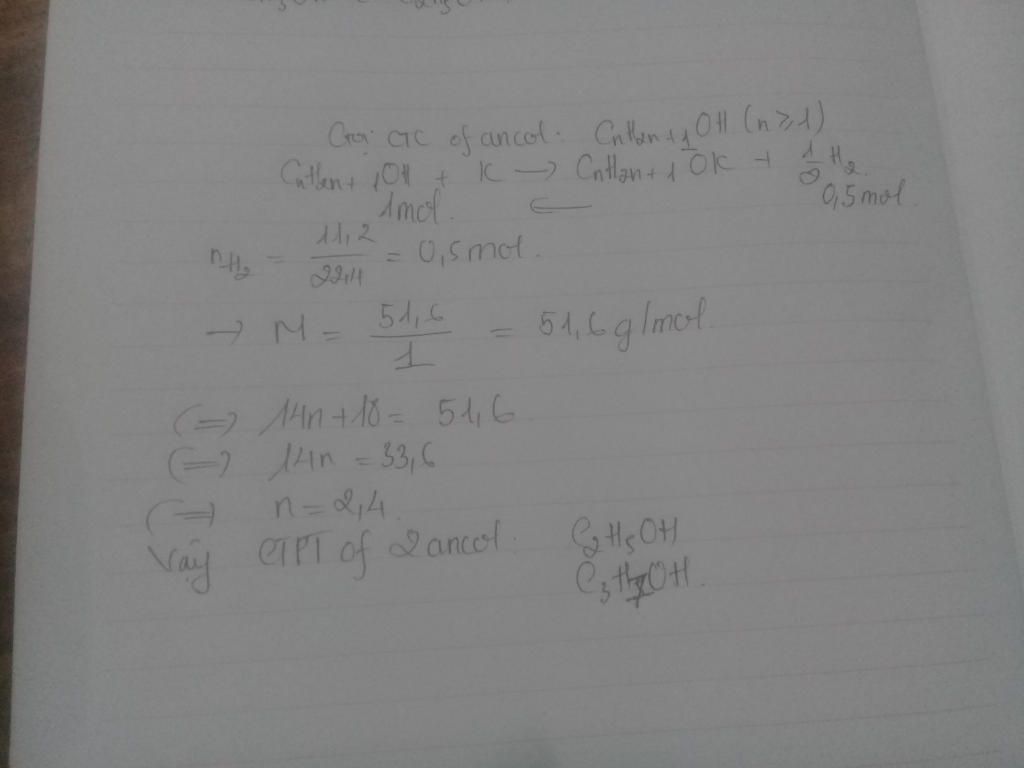 Gọi CTC of ancol: CnH2n+1OH (n ≥ 1)
CnH2n+1OH + K → CnH2n+1OK + 1/2 H2
1mol ← 0,5mol
nH2 = 11,2/22,4 = 0,5mol.
→ M = 51,6/1 = 51,6g/mol
(=) 14n+18 = 51,6
(=) 14n = 33,6
(=) n = 2,4
Vậy CTPT of 2 ancol: C2H5OH
C3H7OH.